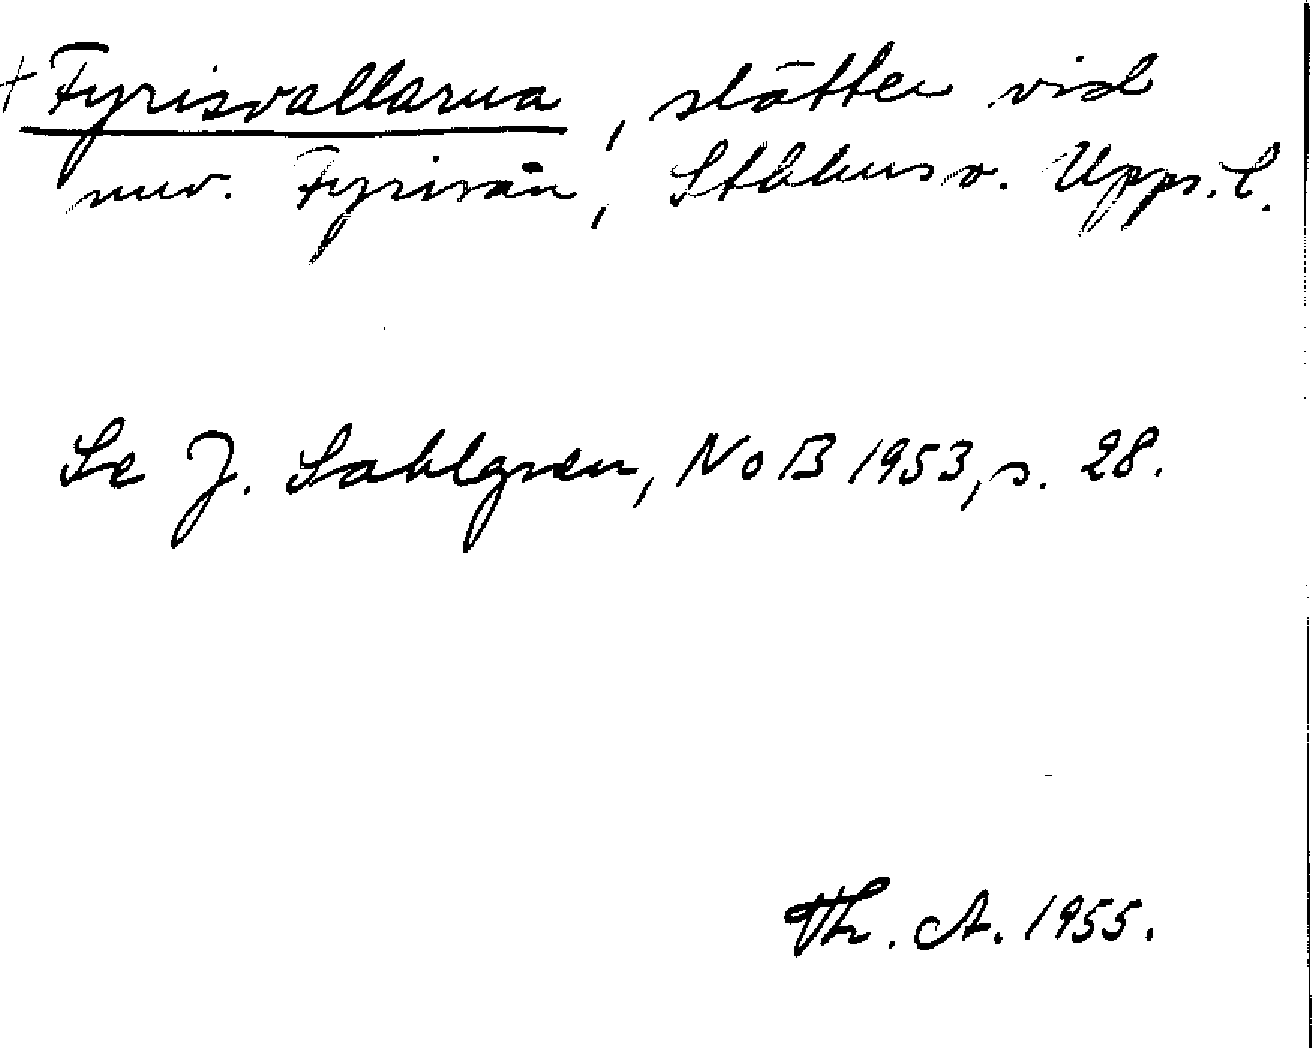 + Fyrisvallarna, slätten vid
nuv. Fyrisån, Sthlms o. Upps. l.
Se J. Sahlgren, NoB 1953, s. 28.
Th. A. 1955.